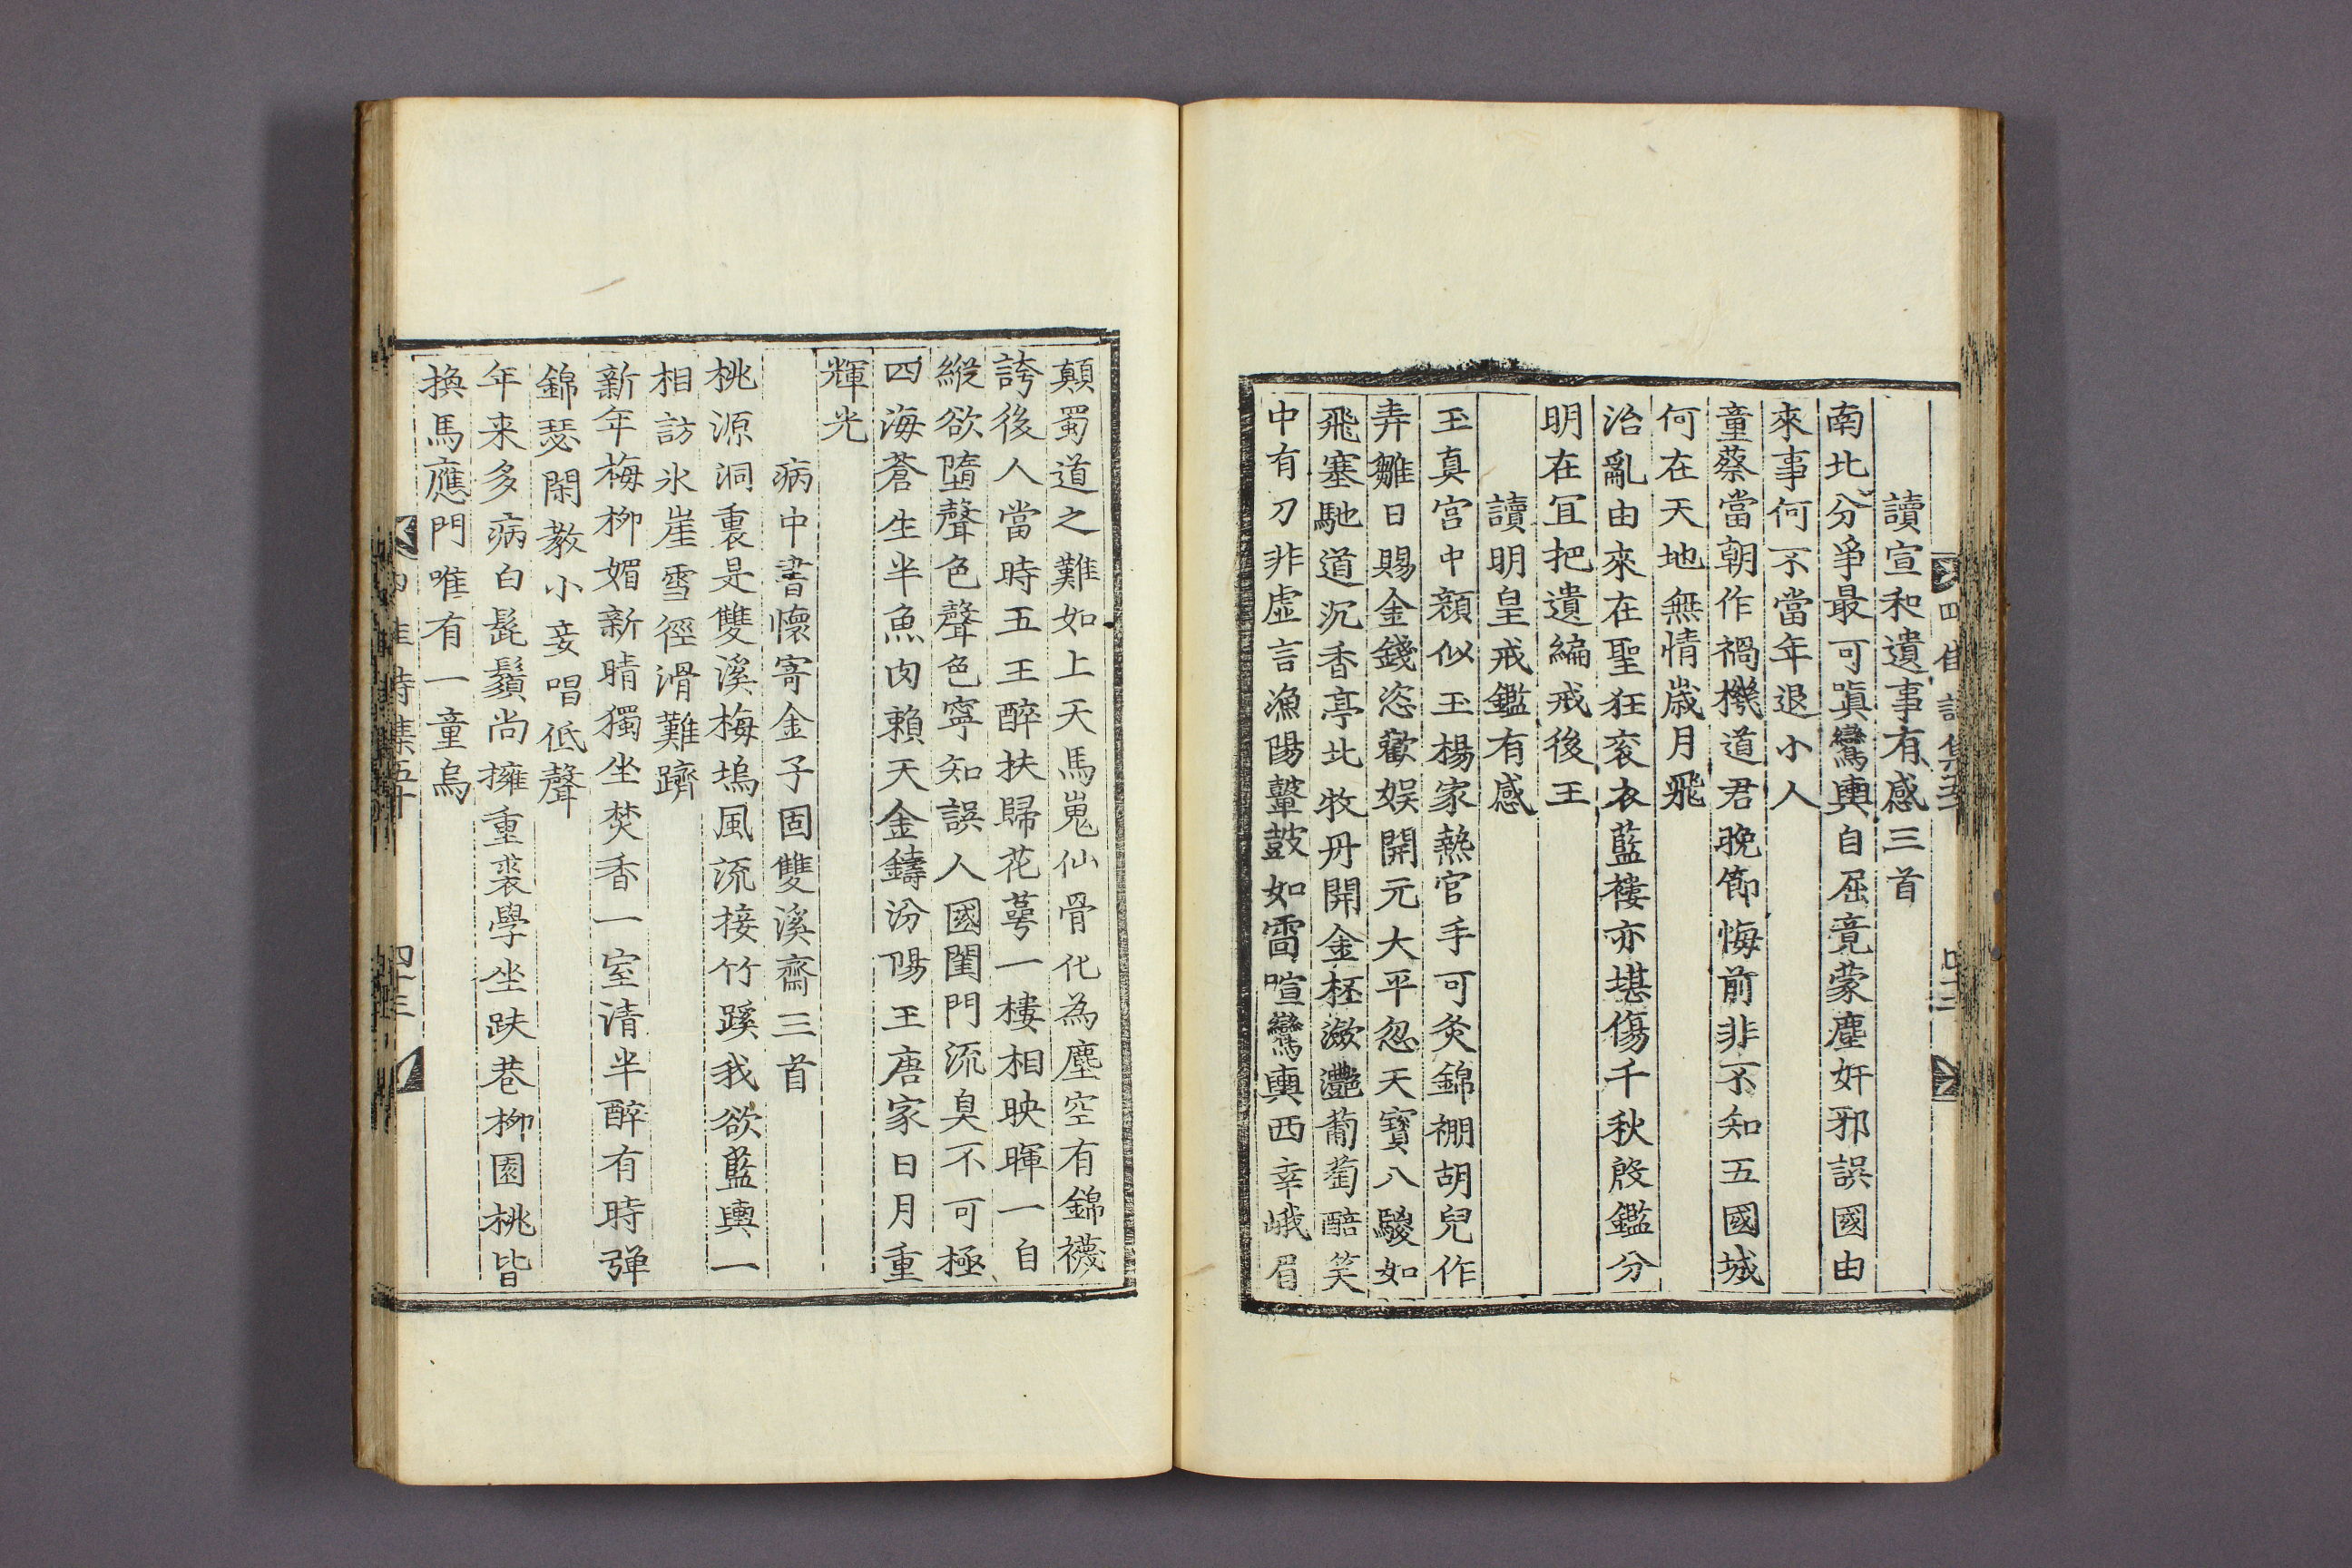 讀宣和遺事有感三首
南北分爭最可嗔鸞輿自屈竟蒙塵奸邪誤國由
來事何不當年退小人
童蔡當朝作禍機道君晚節悔前非不知五國城
何在天地無情歲月飛
治亂由來在聖狂衮衣藍褸亦堪傷千秋殷鑑分
明在冝把遺編戒後王
讀明皇戒鑑有感
玉真宮中顔似玉楊家熱官手可炙錦棚胡兒作
弄雛日賜金錢恣歡娱開元大平忽天寶八駿如
飛塞馳道沉香亭北牧丹開金杯瀲灔葡萄醅笑
中有刀非虛言漁陽鼙鼓如雷喧鸞輿西幸峨眉
顛蜀道之難如上天馬嵬仙骨化為塵空有錦襪
誇後人當時五王醉扶歸花萼一樓相映暉一自
縱欲墮聲色聲色寧知誤人國閨門流臭不可極
四海蒼生半魚肉賴天金鑄汾陽王唐家日月重
輝光
病中書懷寄金子固雙溪齋三首
桃源洞裏是雙溪梅塢風流接竹蹊我欲藍輿一
相訪氷崖雪徑滑難躋
新年梅柳媚新晴獨坐焚香一室清半醉有時弹
錦瑟閑敎小妾唱低聲
年来多病白髭鬚尚擁重裘學坐趺巷柳園桃皆
換馬應門唯有一童烏